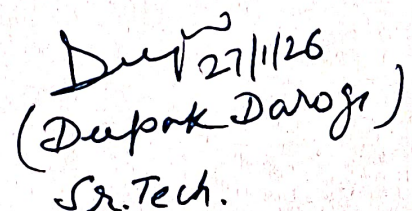 27/1/26
(Deepak Darogi)
Sr. Tech.